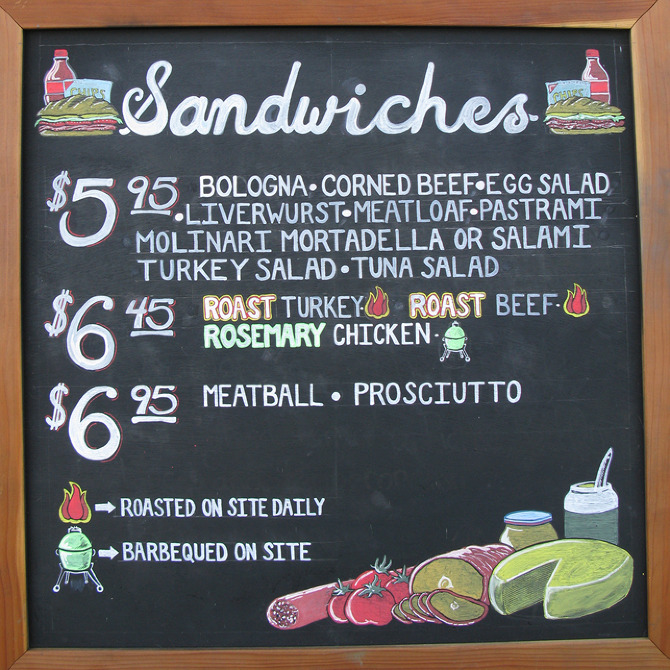 Sandwiches
CHIPS CHIPS
$5 95 BOLOGNA • CORNED BEEF • EGG SALAD
• LIVERWURST • MEATLOAF • PASTRAMI
MOLINARI MORTADELLA OR SALAMI
TURKEY SALAD • TUNA SALAD
$6 45 ROAST TURKEY • ROAST BEEF •
ROSEMARY CHICKEN •
$6 95 MEATBALL • PROSCIUTTO
→ ROASTED ON SITE DAILY
→ BARBEQUED ON SITE